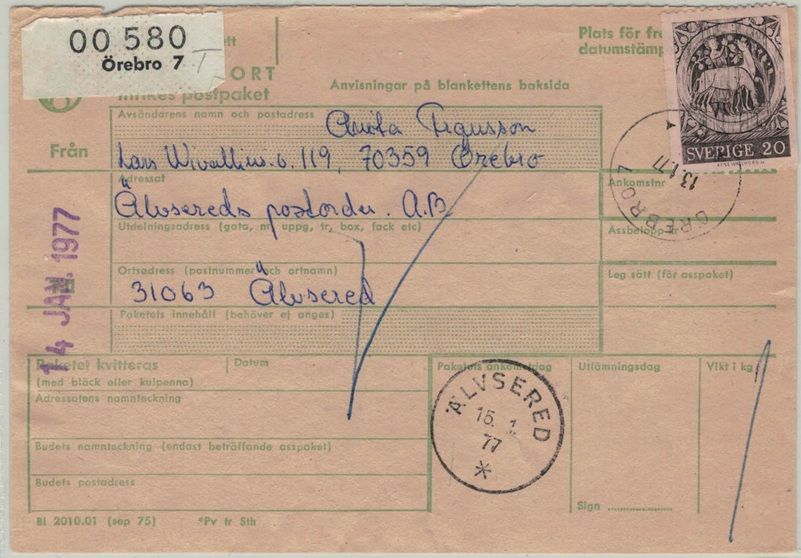 00 580
Örebro 7 T
ett
ORT
Inrikes postpaket
Anvisningar på blankettens baksida
Plats för fr
datumstämp
SVERIGE 20
Från
Avsändarens namn och postadress
Anita
Lars Wivallius. v. 119, 70359 Örebro
Adressat
Älvsereds postorder. A.B
Utdelningsadress (gata, nr, uppg, tr, box, fack etc)
Ortsadress (postnummer och ortnamn)
31063 Älvsered
Paketets innehåll (behöver ej anges)
Ankomstnr
Assbelopp
Leg sätt (för asspaket)
ÖREBRO 7
13.1.77
14 JAN. 1977
Paketet kvitteras
(med bläck eller kulpenna)
Datum
Adressatens namnteckning
Budets namnteckning (endast beträffande asspaket)
Budets postadress
Paketets ankomstdag
Utlämningsdag
Vikt i kg
ÄLVSERED
15. 1.
77
Sign
Bl 2010.01 (sep 75) *Pv tr Sth